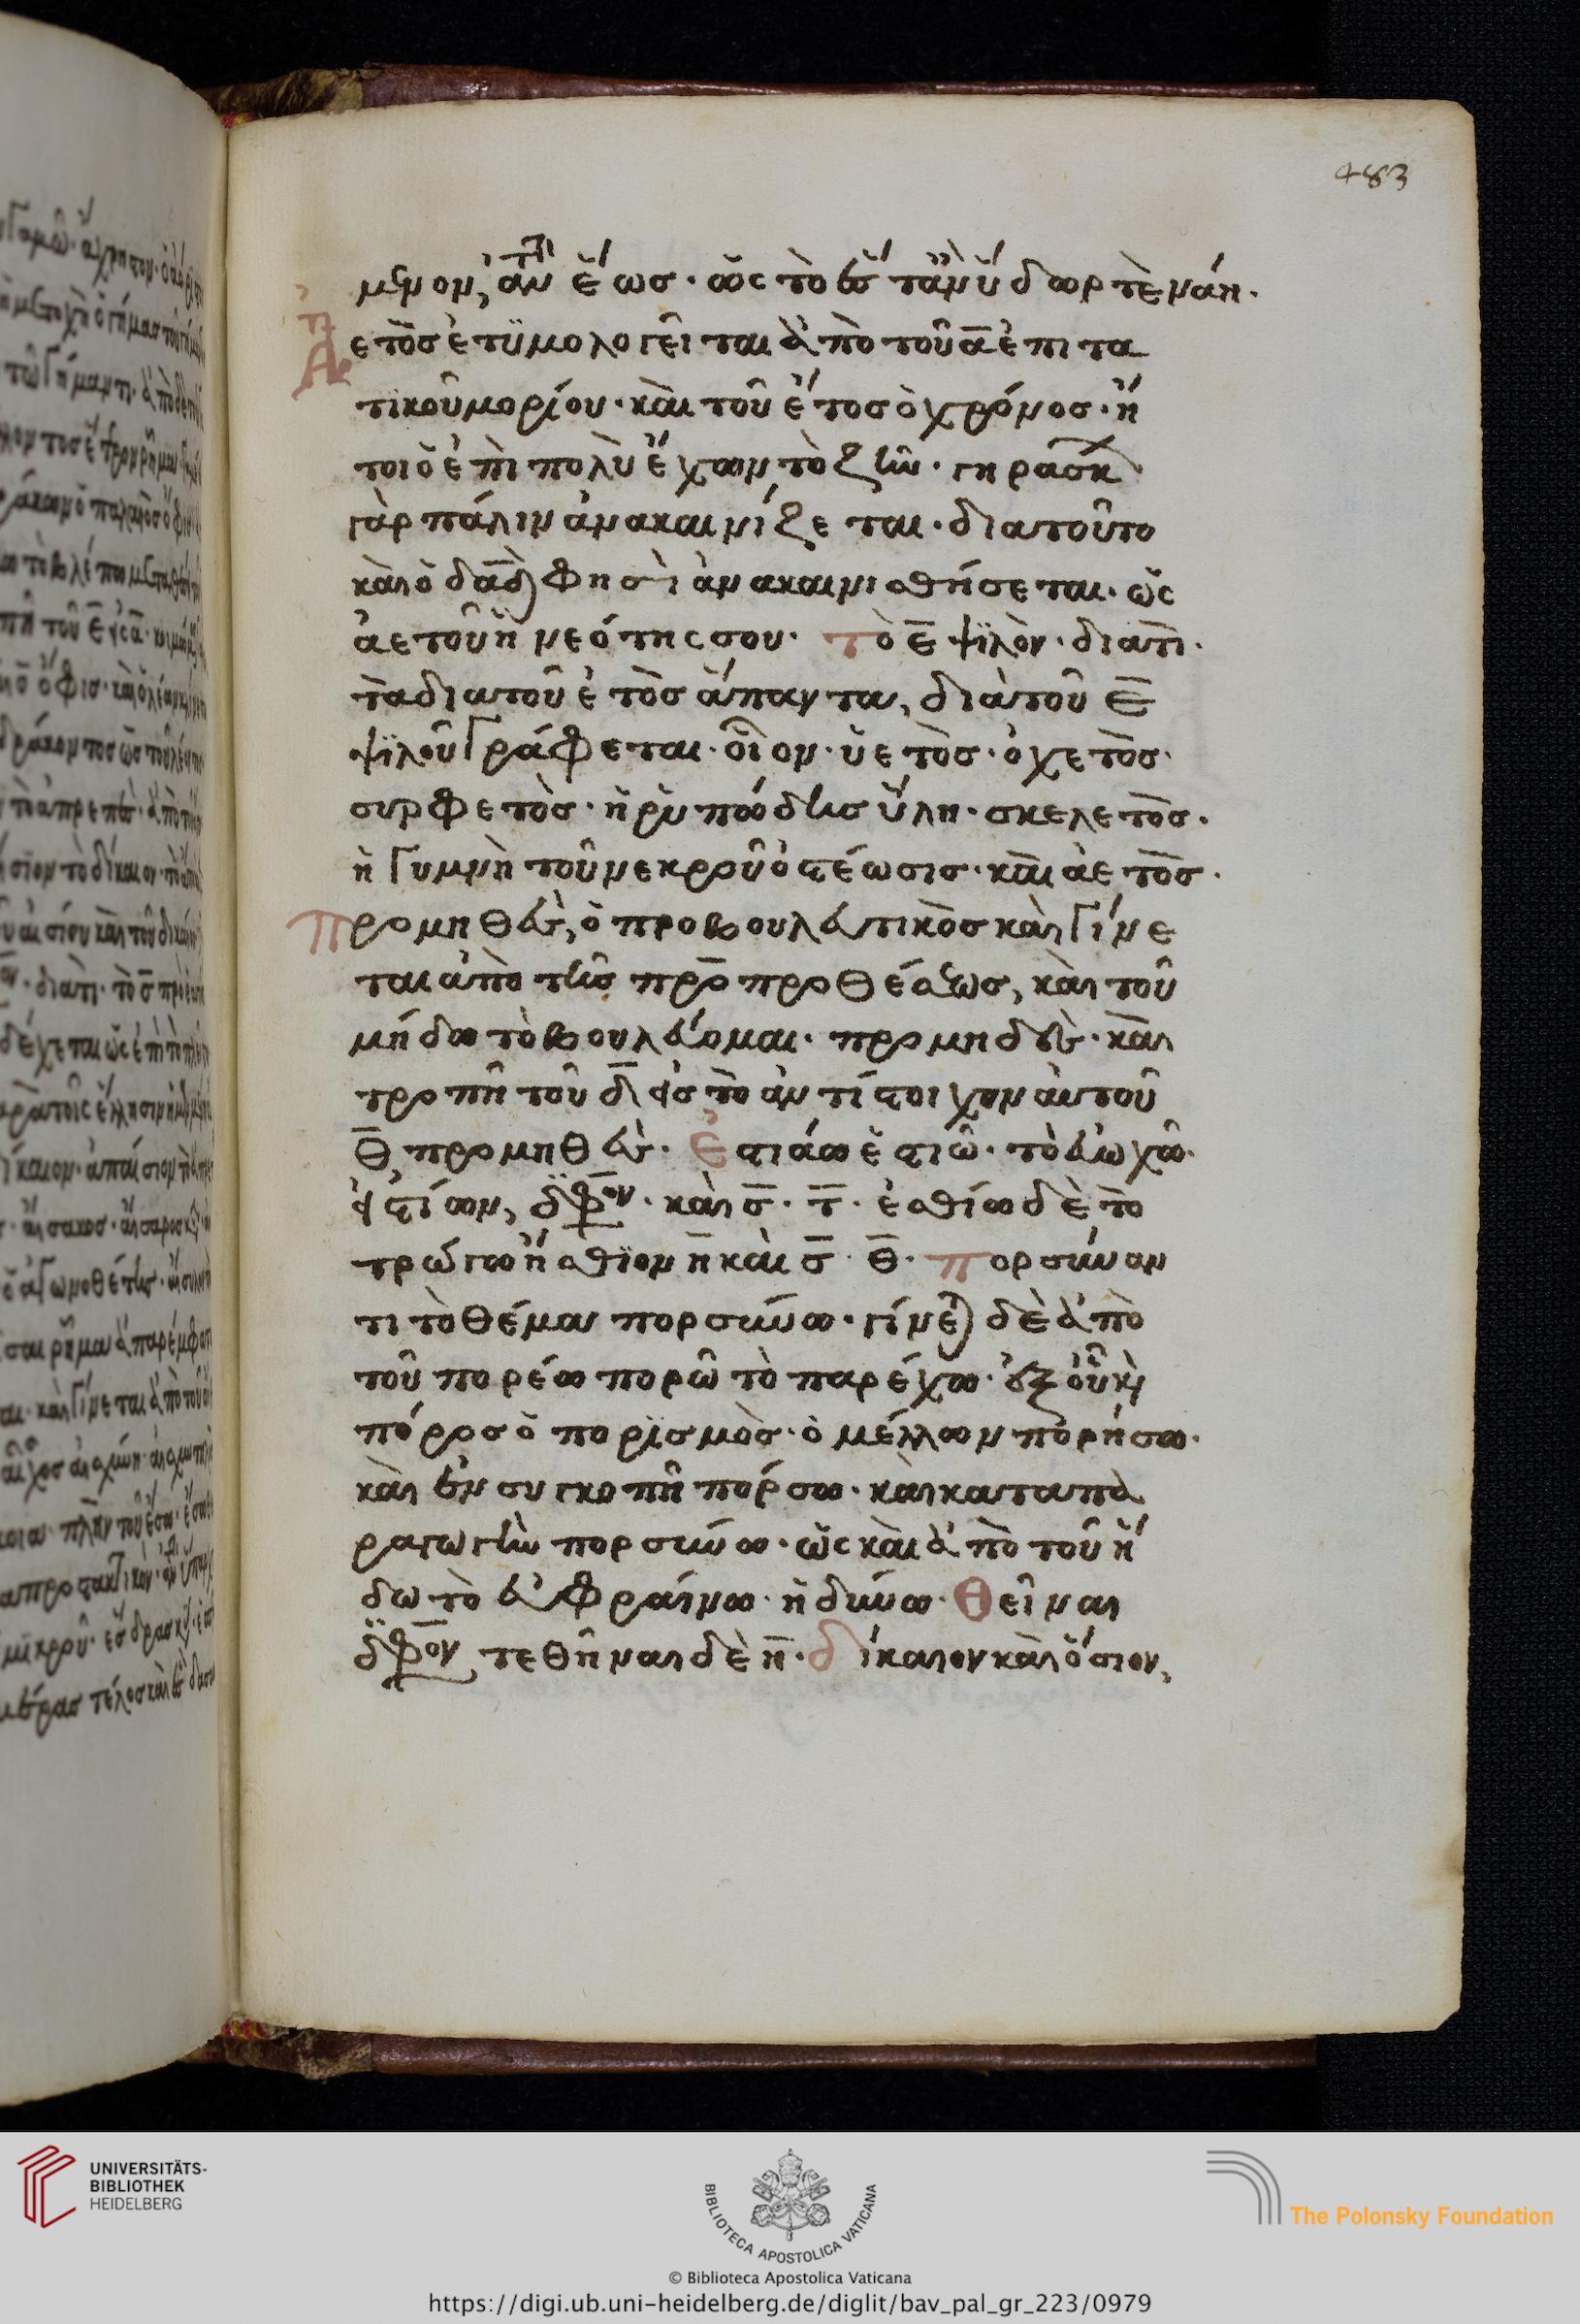 483
μενον, ἀντὶ ἕως. ὡς τὸ εἵ τἂν ὕδωρ τὲ νάη.
Ἀετὸσ ἐτϋμολογεῖται ἀπὸ τοῦ α ἐπιτα
τικοῦ μορίου. καὶ τοῦ ἔτοσ ὁ χρόνος. ἤ
τοι ὁ ἐπὶ πολὺ ἔχων τὸ ζῆν. γηράσκ
γὰρ πάλιν ἀνακαινίζεται. διατοῦτο
καὶ ὁ δαδ φησὶ ἀνακαινισθήσεται. ὡς
ἀετοῦ ἡ νεότης σου. τὸ ε ψϊλὸν. διατί.
τὰ διατοῦ ετὸσ ἅπαντα, διὰ τοῦ ε
ψϊλοῦ γράφεται. οἷον. ὑετὸσ. ὀχετὸσ.
συρφετὸσ. ἡ ῥυπώδησ ὕλη. σκελετὸσ.
ἡ γυμνὴ τοῦ νεκροῦ ὀστέωσισ. καὶ ἀετὸσ.
Προμηθεὺς, ὁ προβουλευτικὸσ καὶ γίνε
ται ἀπὸ τῆσ πρὸ προθέσεωσ, καὶ τοῦ
μήδω τὸ βουλεύομαι. προμηδεὺς. καὶ
τροπῆ τοῦ δ εἰσ τὸ ἀντίστοιχον ἀυτοῦ
θ, προμηθεὺς. ἑστιάω ἑστιῶ. τὸ εὐωχῶ.
εἱστίων, δΐφθον. καὶ σ. τ. ἐσθίω δὲ τὸ
τρώγω ἤσθϊον η καὶ σ. θ. πορσύναν
τι τὸ θέμα πορσύνω. γίνε δὲ ἀπὸ
τοῦ πορέω πορῶ τὸ παρέχω. ἐξ οὗ καὶ
πόροσ ὁ πορϊσμὸσ. ὁ μέλλων πορήσω.
καὶ ἐν συγκοπῆ πόρσω. καὶ κατα πα
ραγωγὴν πορσύνω. ὡς καὶ ἀπὸ τοῦ ἥ
δω τὸ εὐφραίνω. ἡδύνω. θεῖναι
δΐφθον τεθῆναι δὲ η. δίκαιον καὶ ὅσιον,
UNIVERSITÄTS-
BIBLIOTHEK
HEIDELBERG
BIBLIOTECA APOSTOLICA VATICANA
The Polonsky Foundation
© Biblioteca Apostolica Vaticana
https://digi.ub.uni-heidelberg.de/diglit/bav_pal_gr_223/0979